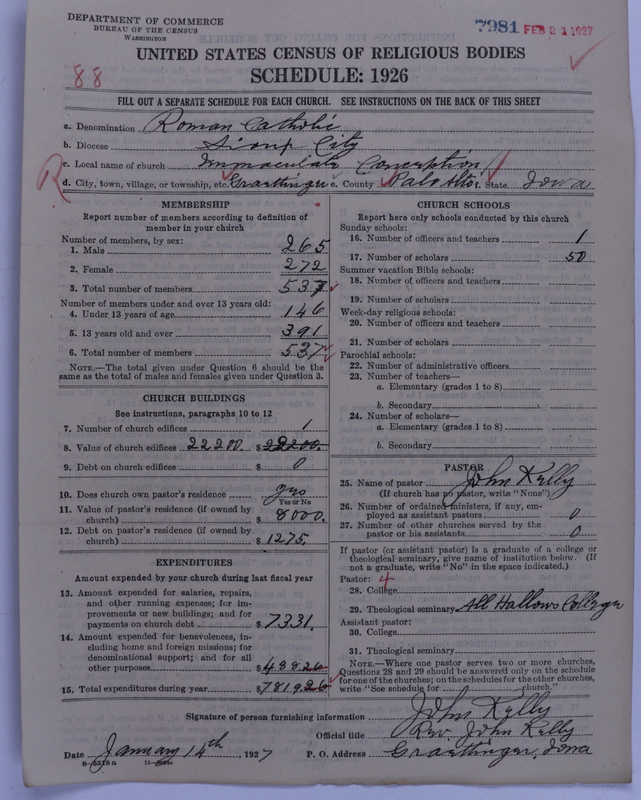 DEPARTMENT OF COMMERCE
BUREAU OF THE CENSUS
WASHINGTON
7981 FEB 21 1927
UNITED STATES CENSUS OF RELIGIOUS BODIES
SCHEDULE: 1926
88
FILL OUT A SEPARATE SCHEDULE FOR EACH CHURCH. SEE INSTRUCTIONS ON THE BACK OF THIS SHEET
a. Denomination Roman Catholic
b. Diocese Sioux City
c. Local name of church Immaculate Conception
R
d. City, town, village, or township, etc. Graettinger e. County Palo Alto f. State Iowa
MEMBERSHIP
Report number of members according to definition of
member in your church
Number of members, by sex:
1. Male 265
2. Female 272
3. Total number of members 537
Number of members under and over 13 years old:
4. Under 13 years of age 146
5. 13 years old and over 391
6. Total number of members 537
NOTE.—The total given under Question 6 should be the
same as the total of males and females given under Question 3.
CHURCH BUILDINGS
See instructions, paragraphs 10 to 12
7. Number of church edifices 1
8. Value of church edifices 22200. $ 22200.
9. Debt on church edifices $ 0
10. Does church own pastor's residence yes
Yes or No
11. Value of pastor's residence (if owned by
church) $ 8000.
12. Debt on pastor's residence (if owned by
church) $ 1275.
EXPENDITURES
Amount expended by your church during last fiscal year
13. Amount expended for salaries, repairs,
and other running expenses; for im-
provements or new buildings; and for
payments on church debt $ 7331.
14. Amount expended for benevolences, in-
cluding home and foreign missions; for
denominational support; and for all
other purposes $ 488.26
15. Total expenditures during year $ 7819.26
CHURCH SCHOOLS
Report here only schools conducted by this church
Sunday schools:
16. Number of officers and teachers 1
17. Number of scholars 50
Summer vacation Bible schools:
18. Number of officers and teachers
19. Number of scholars
Week-day religious schools:
20. Number of officers and teachers
21. Number of scholars
Parochial schools:
22. Number of administrative officers
23. Number of teachers—
a. Elementary (grades 1 to 8)
b. Secondary
24. Number of scholars—
a. Elementary (grades 1 to 8)
b. Secondary
PASTOR
25. Name of pastor John Kelly
(If church has no pastor, write "None")
26. Number of ordained ministers, if any, em-
ployed as assistant pastors 0
27. Number of other churches served by the
pastor or his assistants 0
If pastor (or assistant pastor) is a graduate of a college or
theological seminary, give name of institution below. (If
not a graduate, write "No" in the space indicated.)
Pastor: 4
28. College
29. Theological seminary All Hallows College
Assistant pastor:
30. College
31. Theological seminary
NOTE.—Where one pastor serves two or more churches,
Questions 28 and 29 should be answered only on the schedule
for one of the churches; on the schedules for the other churches,
write "See schedule for church."
Signature of person furnishing information John Kelly
Official title Rev. John Kelly
Date January 14th, 1927 P. O. Address Graettinger, Iowa